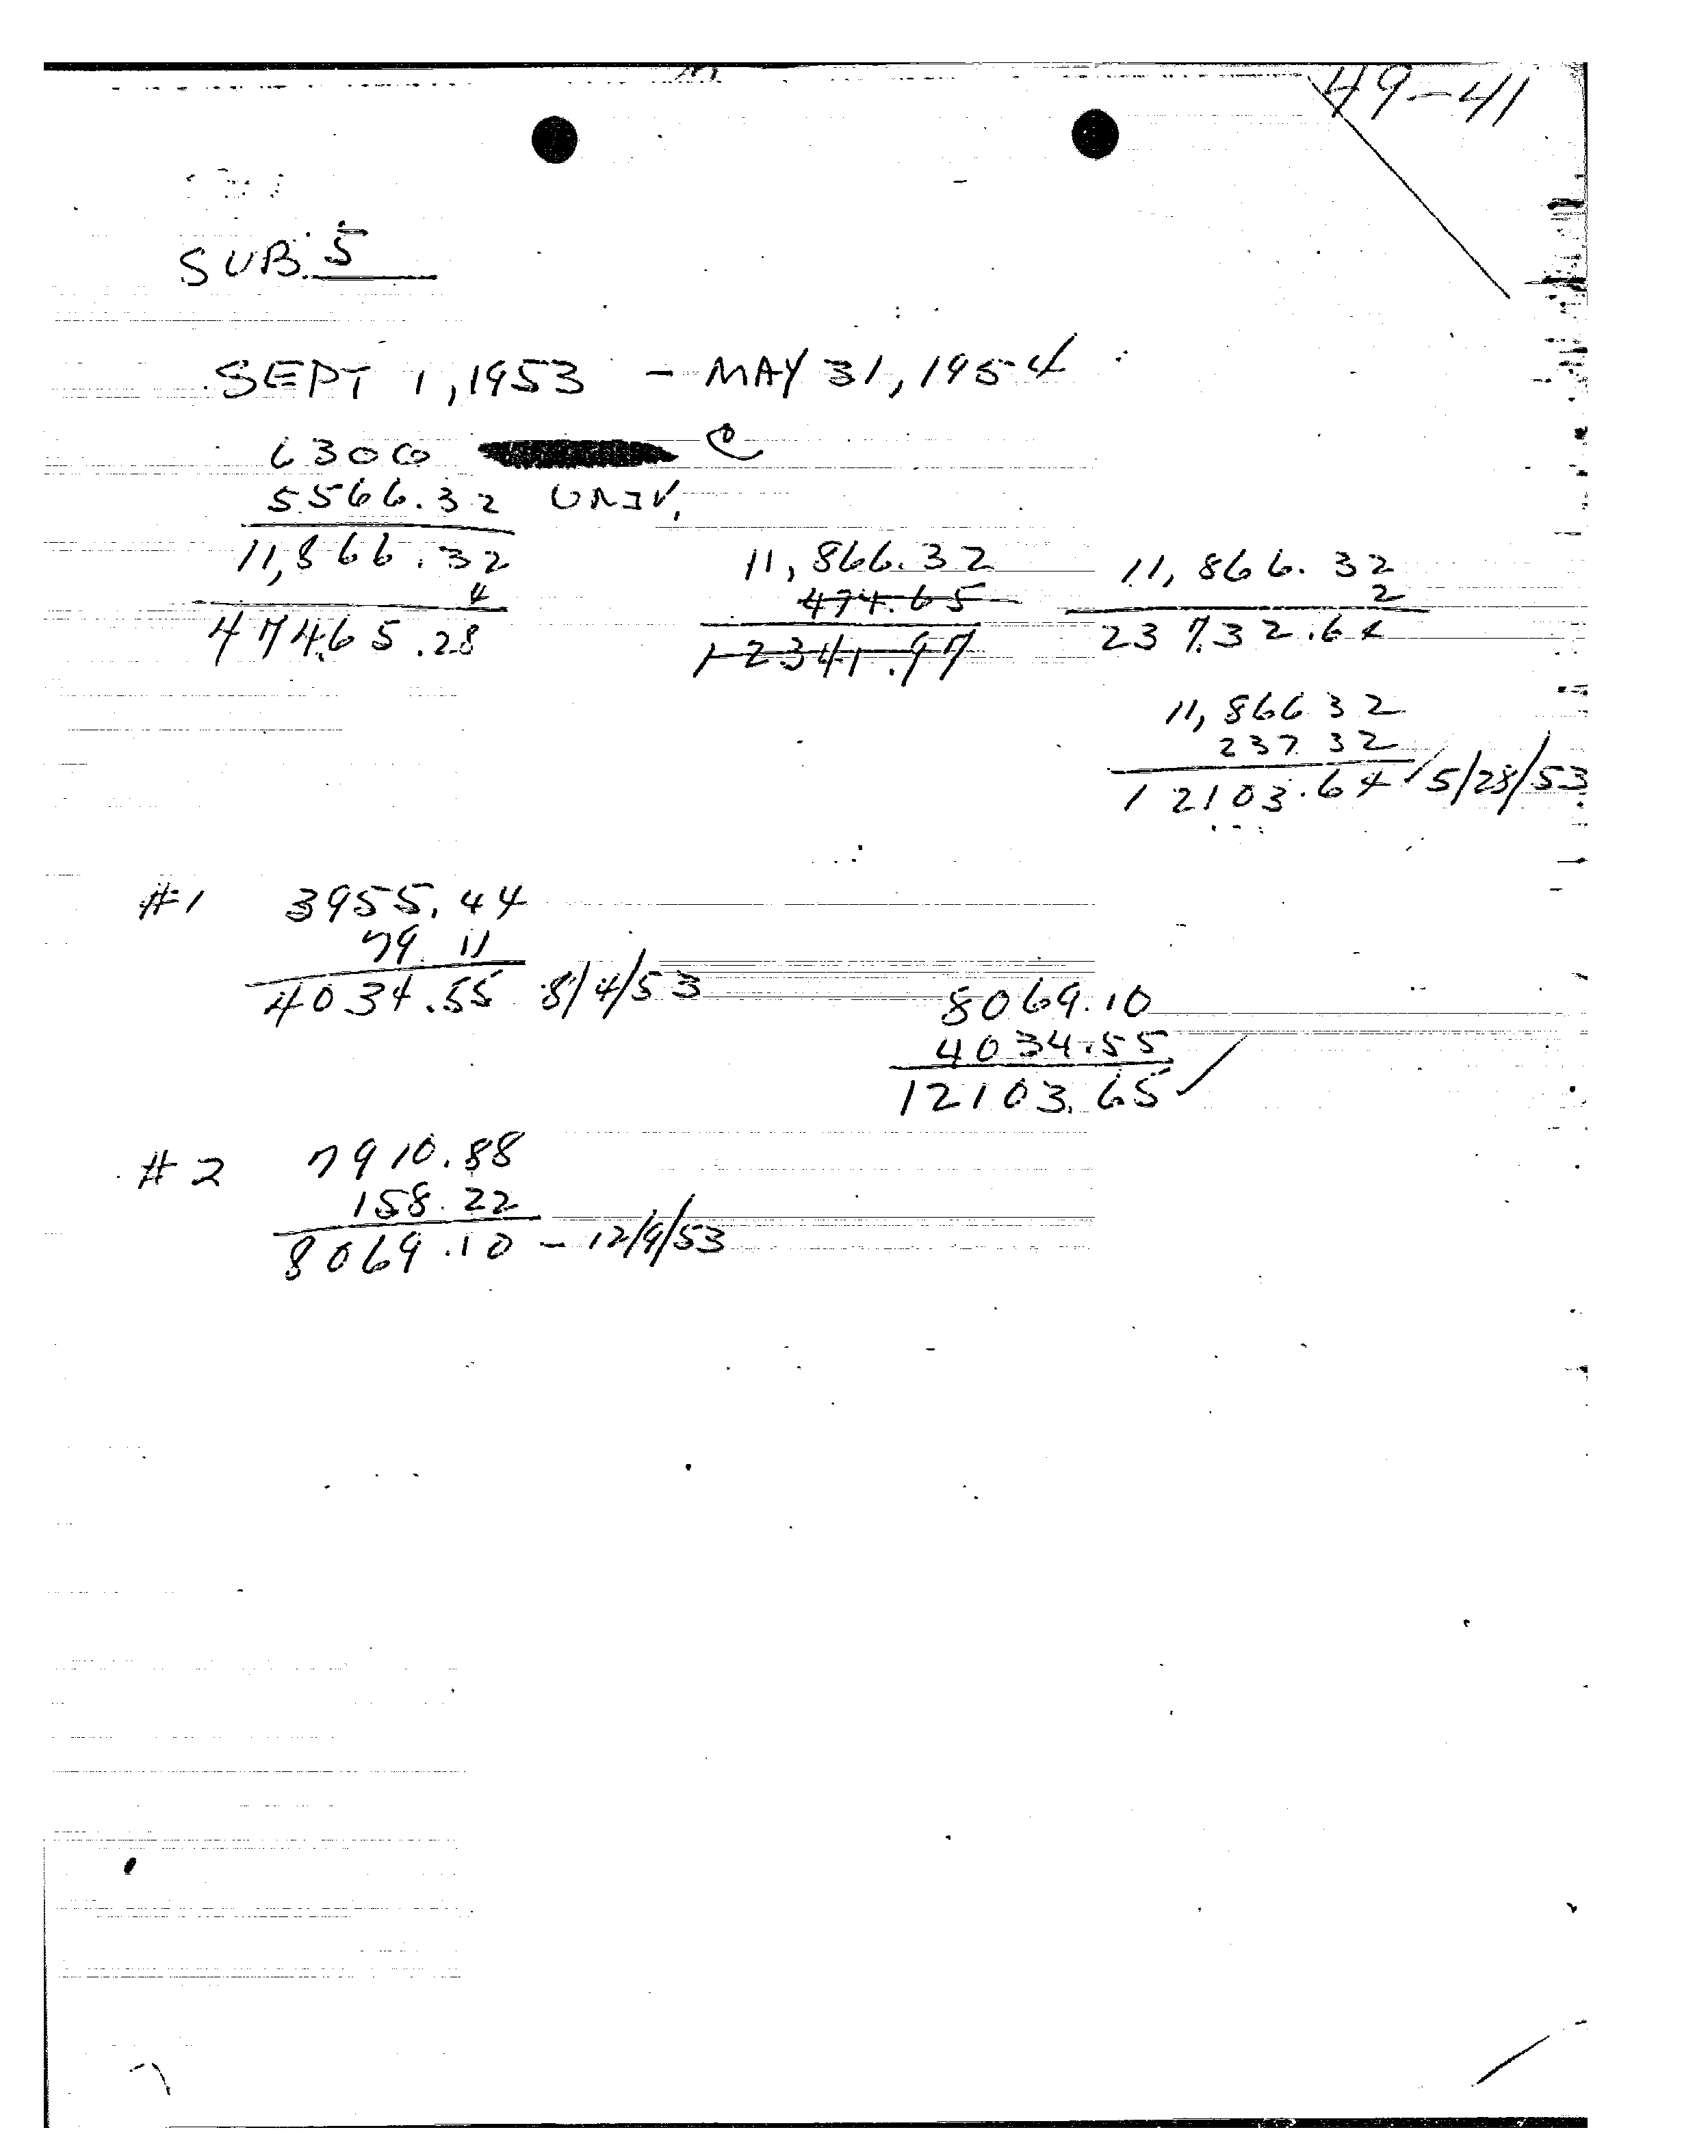 49-41
SUB. 5
SEPT 1, 1953 - MAY 31, 1954
6300
5566.32 UNIV.
11,866.32
4
47465.28
11,866.32
474.65
12341.97
11,866.32
2
23732.64
11,866 32
237 32
12103.64 5/28/53
#1 3955.44
79.11
4034.55 8/4/53
8069.10
4034.55
12103.65
#2 7910.88
158.22
8069.10 - 12/9/53